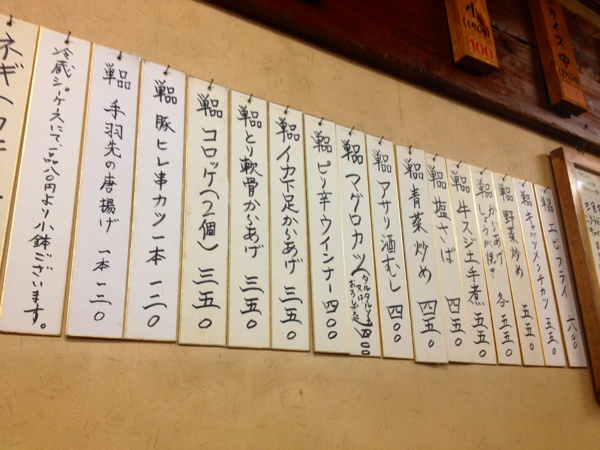 単品 エビフライ 六〇〇
単品 キャベツメンチカツ 五五〇
単品 野菜炒め 五五〇
単品 からあげ しょうが焼き 各五五〇
単品 牛スジ土手煮 四五〇
単品 塩さば 四五〇
単品 青菜炒め 四五〇
単品 アサリ酒むし 四〇〇
単品 マグロカツ
単品 ピリ辛ウインナー 四〇〇
単品 イカ下足からあげ 三五〇
単品 とり軟骨からあげ 三五〇
単品 コロッケ(2個) 三五〇
単品 豚ヒレ串カツ一本 一二〇
単品 手羽先の唐揚げ 一本 一二〇
冷蔵ショーケースにて、一品八〇円より小鉢ございます。
ネギ
小
100
ライス 中